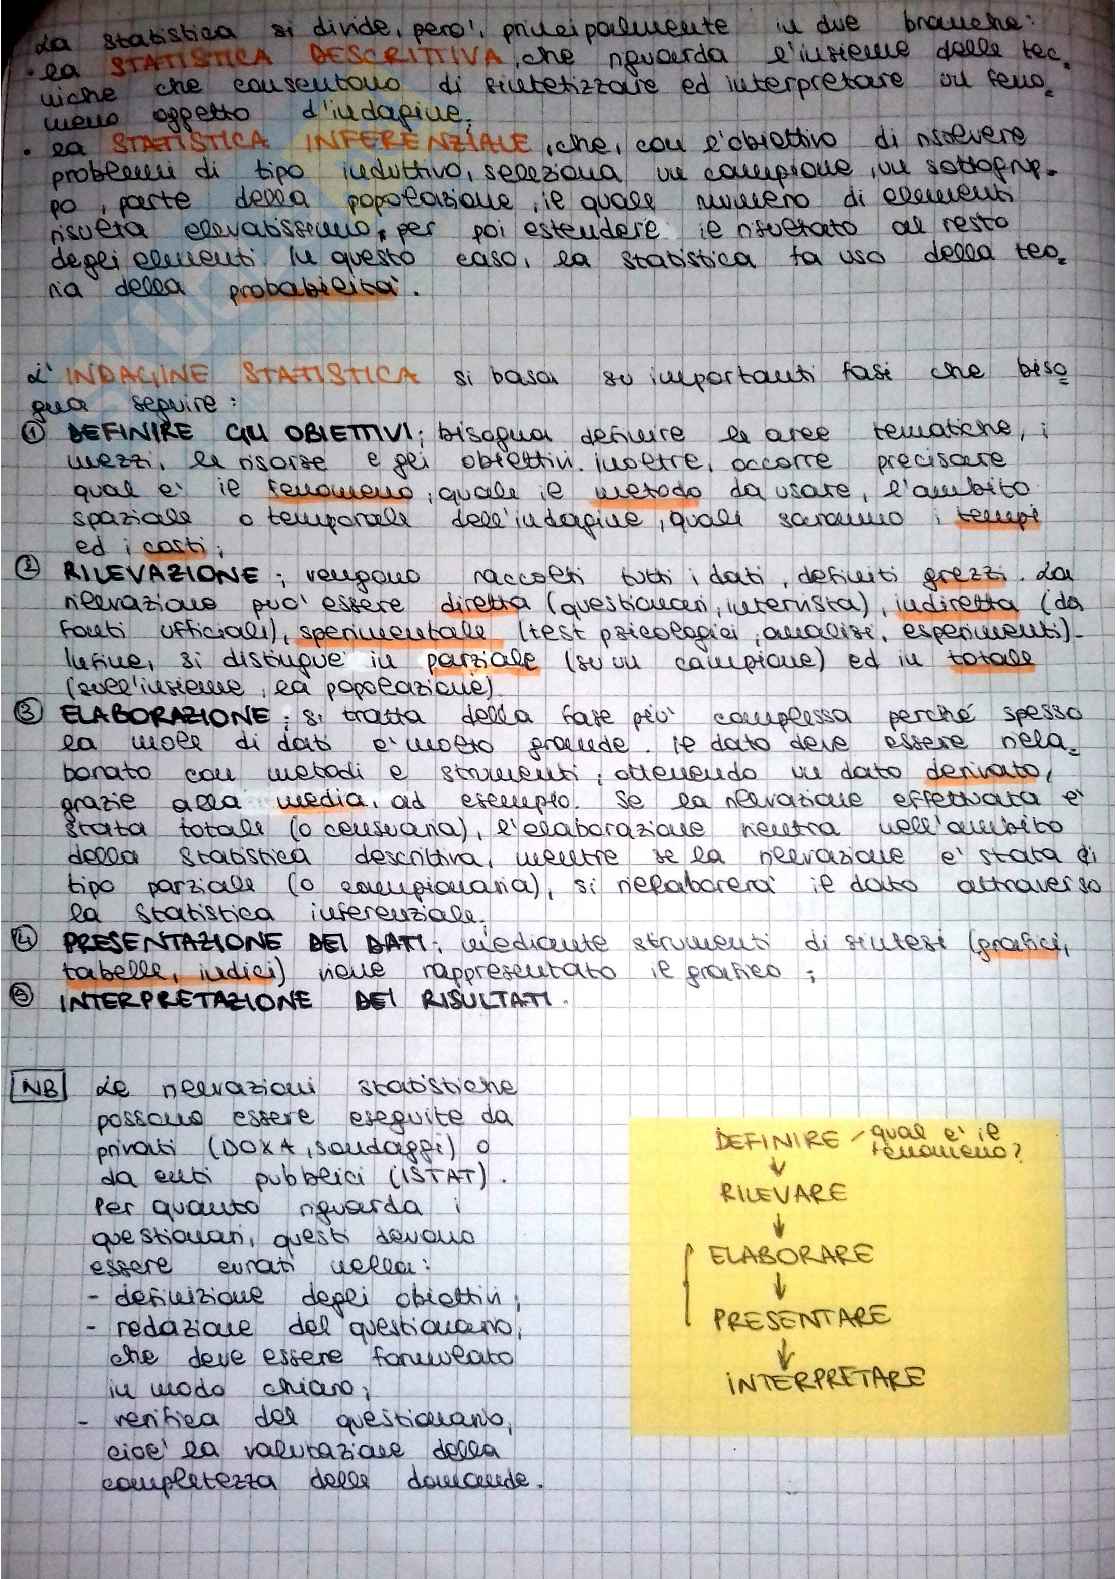 La statistica si divide, però, principalmente in due branche:
• la STATISTICA DESCRITTIVA, che riguarda l'insieme delle tec=
niche che consentono di sintetizzare ed interpretare un feno=
meno oggetto d'indagine;
• la STATISTICA INFERENZIALE, che, con l'obiettivo di risolvere
problemi di tipo induttivo, seleziona un campione, un sottogrup=
po, parte della popolazione, il quale numero di elementi
risulta elevatissimo, per poi estendere il risultato al resto
degli elementi. In questo caso, la statistica fa uso della teo=
ria della probabilità.
L'INDAGINE STATISTICA si basa su importanti fasi che biso=
gna seguire:
① DEFINIRE GLI OBIETTIVI; bisogna definire le aree tematiche, i
mezzi, le risorse e gli obiettivi. Inoltre, occorre precisare
qual è il fenomeno, quale il metodo da usare, l'ambito
spaziale o temporale dell'indagine, quali saranno i tempi
ed i costi;
② RILEVAZIONE; vengono raccolti tutti i dati, definiti grezzi. La
rilevazione può essere diretta (questionari, intervista), indiretta (da
fonti ufficiali), sperimentale (test psicologici, analisi, esperimenti).
Infine, si distingue in parziale (su un campione) ed in totale
(sull'insieme, la popolazione)
③ ELABORAZIONE; si tratta della fase più complessa perché spesso
la mole di dati è molto grande. Il dato deve essere riela=
borato con metodi e strumenti, ottenendo un dato derivato,
grazie alla media, ad esempio. Se la rilevazione effettuata è
stata totale (o censuaria), l'elaborazione rientra nell'ambito
della statistica descrittiva, mentre se la rilevazione è stata di
tipo parziale (o campionaria), si rielaborerà il dato attraverso
la statistica inferenziale.
④ PRESENTAZIONE DEI DATI; mediante strumenti di sintesi (grafici,
tabelle, indici) viene rappresentato il grafico;
⑤ INTERPRETAZIONE DEI RISULTATI.
NB Le rilevazioni statistiche
possono essere eseguite da
privati (DOXA, sondaggi) o
da enti pubblici (ISTAT).
Per quanto riguarda i
questionari, questi devono
essere curati nella:
- definizione degli obiettivi;
- redazione del questionario,
che deve essere formulato
in modo chiaro;
- verifica del questionario,
cioè la valutazione della
completezza delle domande.
DEFINIRE - qual è il
fenomeno?
↓
RILEVARE
↓
ELABORARE
↓
PRESENTARE
↓
INTERPRETARE